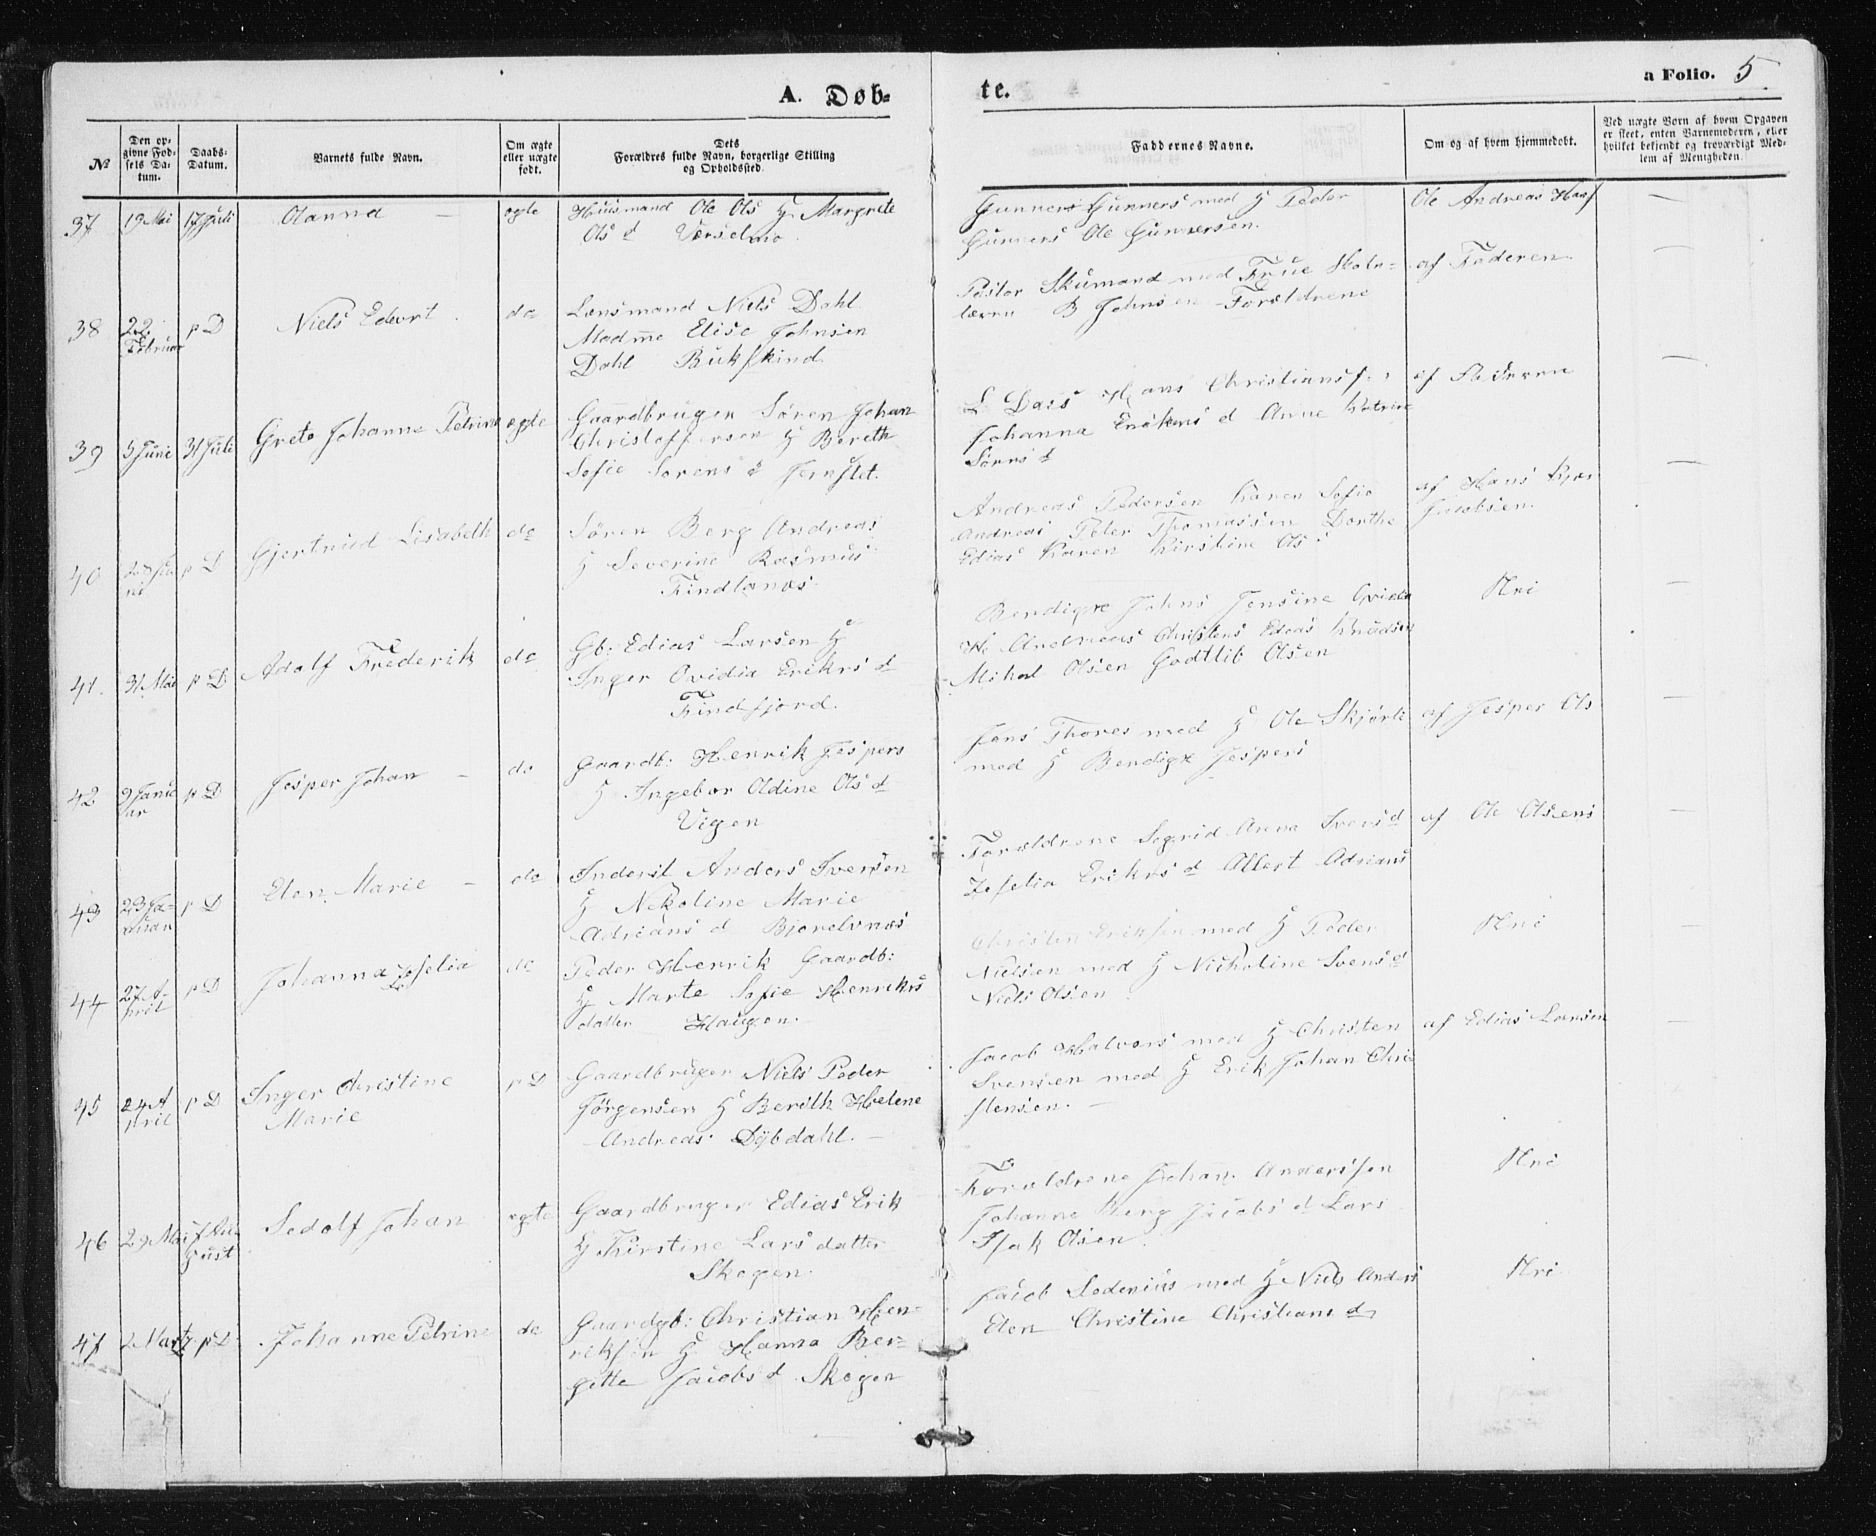 A. Døb-
te.
a Folio. 5
№
Den op-
givne Fød-
sels Da-
tum.
Daabs-
Datum.
Barnets fulde Navn.
Om ægte
eller uægte
født.
Dets
Forældres fulde Navn, borgerlige Stilling
og Opholdssted.
Faddernes Navne.
Om og af hvem hjemmedøbt.
Ved uægte Børn af hvem Opgaven
er skeet, enten Barnemoderen, eller
hvilket bekjendt og troværdigt Med-
lem af Menigheden.
37 19 Mai 17 Juli Olanna — egte
Huusmand Ole Ols H Margrete
Ols d
Gunners Gunners med H Peder
Gunners Ole Gunnersen.
Ole Andreas Haaf —
38 22 Februar p D Niels Edevrt do
Lænsmand Niels Dahl
Madme Elise Johnsen
Dahl Bukskind
Pastor med Frue
B Johnsen Forældrene
af Faderen —
39 5 Juni 31 Juli Grete Johanne Petrine egte
Gaardbruger Søren Johan
Christoffersen H Bereth
Sofie Sorens d
L Dass Hans Christians
Johanna d Anne
Sørns d
af Faderen —
40 p D Gjertrud Lisabeth do
Søren Berg Andreas
H Severine Rasmus
Findlanæs
Andreas Pedersen Karen Sofie
Andreas Peter Thomassen Dorthe
Edias Karen Kirstine Ols d
af Hans
Jacobsen. —
41. 31 Mai p D Adolf Frederik do
Gb: Edias Larsen H
Inger Ovidia Erikrs d
Findfjord.
Bendigte Johns Jensine
Andreas Christens Edeas Knudsen
Mihal Olsen Godtlib Olsen
Hri —
42 9 Januar p D Jesper Johan — do
Gaardb: Henrik Jespers
H Ingebor Oldine Ols d
Vigen
Jens Thores med H Ole
med H Bendigte Jespers
af Jesper Ols —
43 23 Januar p D Elen Marie — do
Inderst Anders Iversen
H Nekoline Marie
Adrians d Bjorelvnæs
Forældrene Sigrid Anna Ivers d
Zefelia Erikrs d Albert Adrians
af Ole Olsens —
44 27 April p D Johanna Josefelia do
Peder Henrik Gaardb:
H Marte Sofie Henrikrs
datter Haugen.
Christen Eriksen med H Peder
Nielsen med H Nickoline Svens d
Niels Olsen
Hri —
45 24 April p D Inger Christine
Marie p D
Gaardbruger Niels Peder
Jørgensen H Berith Helene
Andreas: Dybdahl. —
Jacob Halvors med H Christen
Svensen med H Erik Johan Chri
stensen. —
af Edias Larsen —
46 29 Mai August Sedolf Johan egte
Gaardbruger Edias Erik
H Kirstine Lars datter
Skogen
Forældrene Johan Anderssen
Johanne Berg Jacobs d Lars
Isak Olsen
Hri
47 2 Marts p D Johanne Petrine do
Gaardgb: Christian Hen-
riksen H Hanna Ber-
gette Jacobs d Skogen
Jacob Sedenius med H Niels Anders
Elen Christine Christians d
Hri